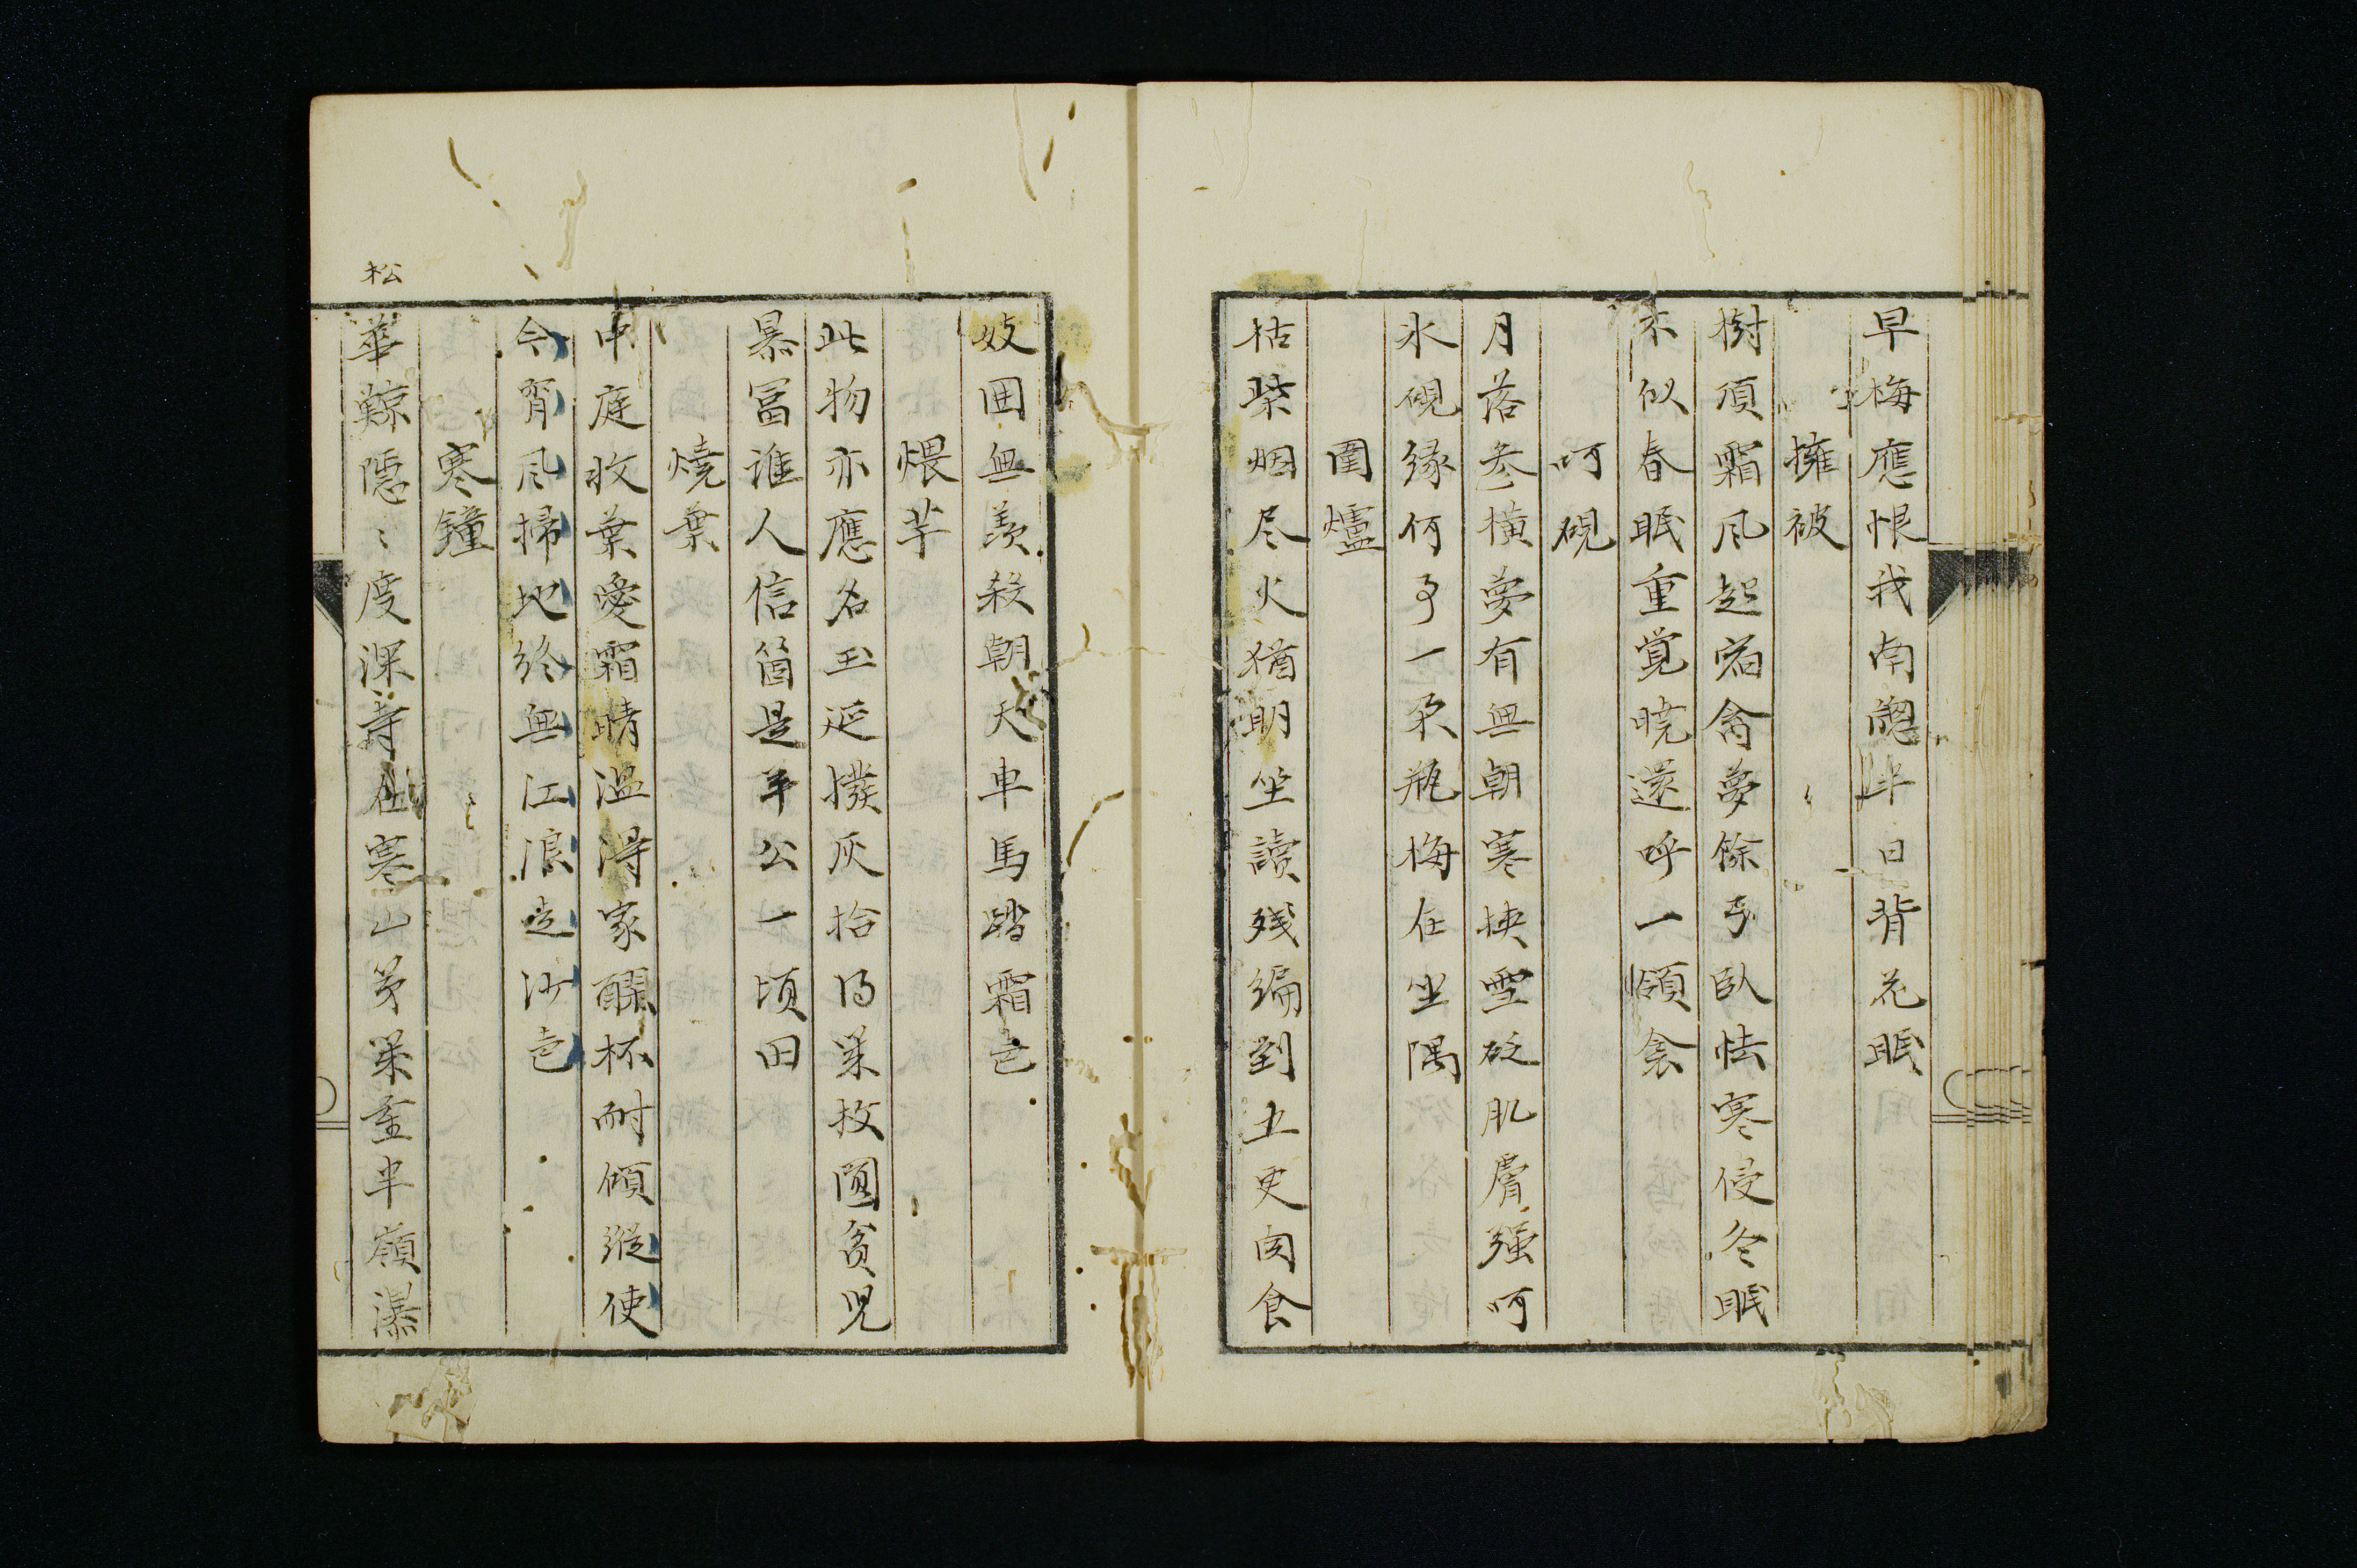 早梅應恨我南窓半日背花眠
擁被
樹頂霜风起宿禽夢餘弓臥怯寒侵冬眠
不似春眠重覚暁還呼一領衾
呵硯
月落参横夢有無朝寒挟雪砭肌膚强呵
氷硯縁何事一朶瓶梅在坐隅
圍爐
枯柴烟尽火猶明坐讀残编到五更肉食
妓囲無羨殺朝天車馬踏霜色
煨芋
此物亦應名玉延撥灰拾得菓拳圓貧児
暴冨誰人信箇是羊公一頃田
燒葉
中庭收葉愛霜晴温得家醸杯耐傾縱使
今宵风掃地終無江浪走沙色
寒鐘
華鯨隠〻度深寺在寒山第幾重半嶺瀑
松